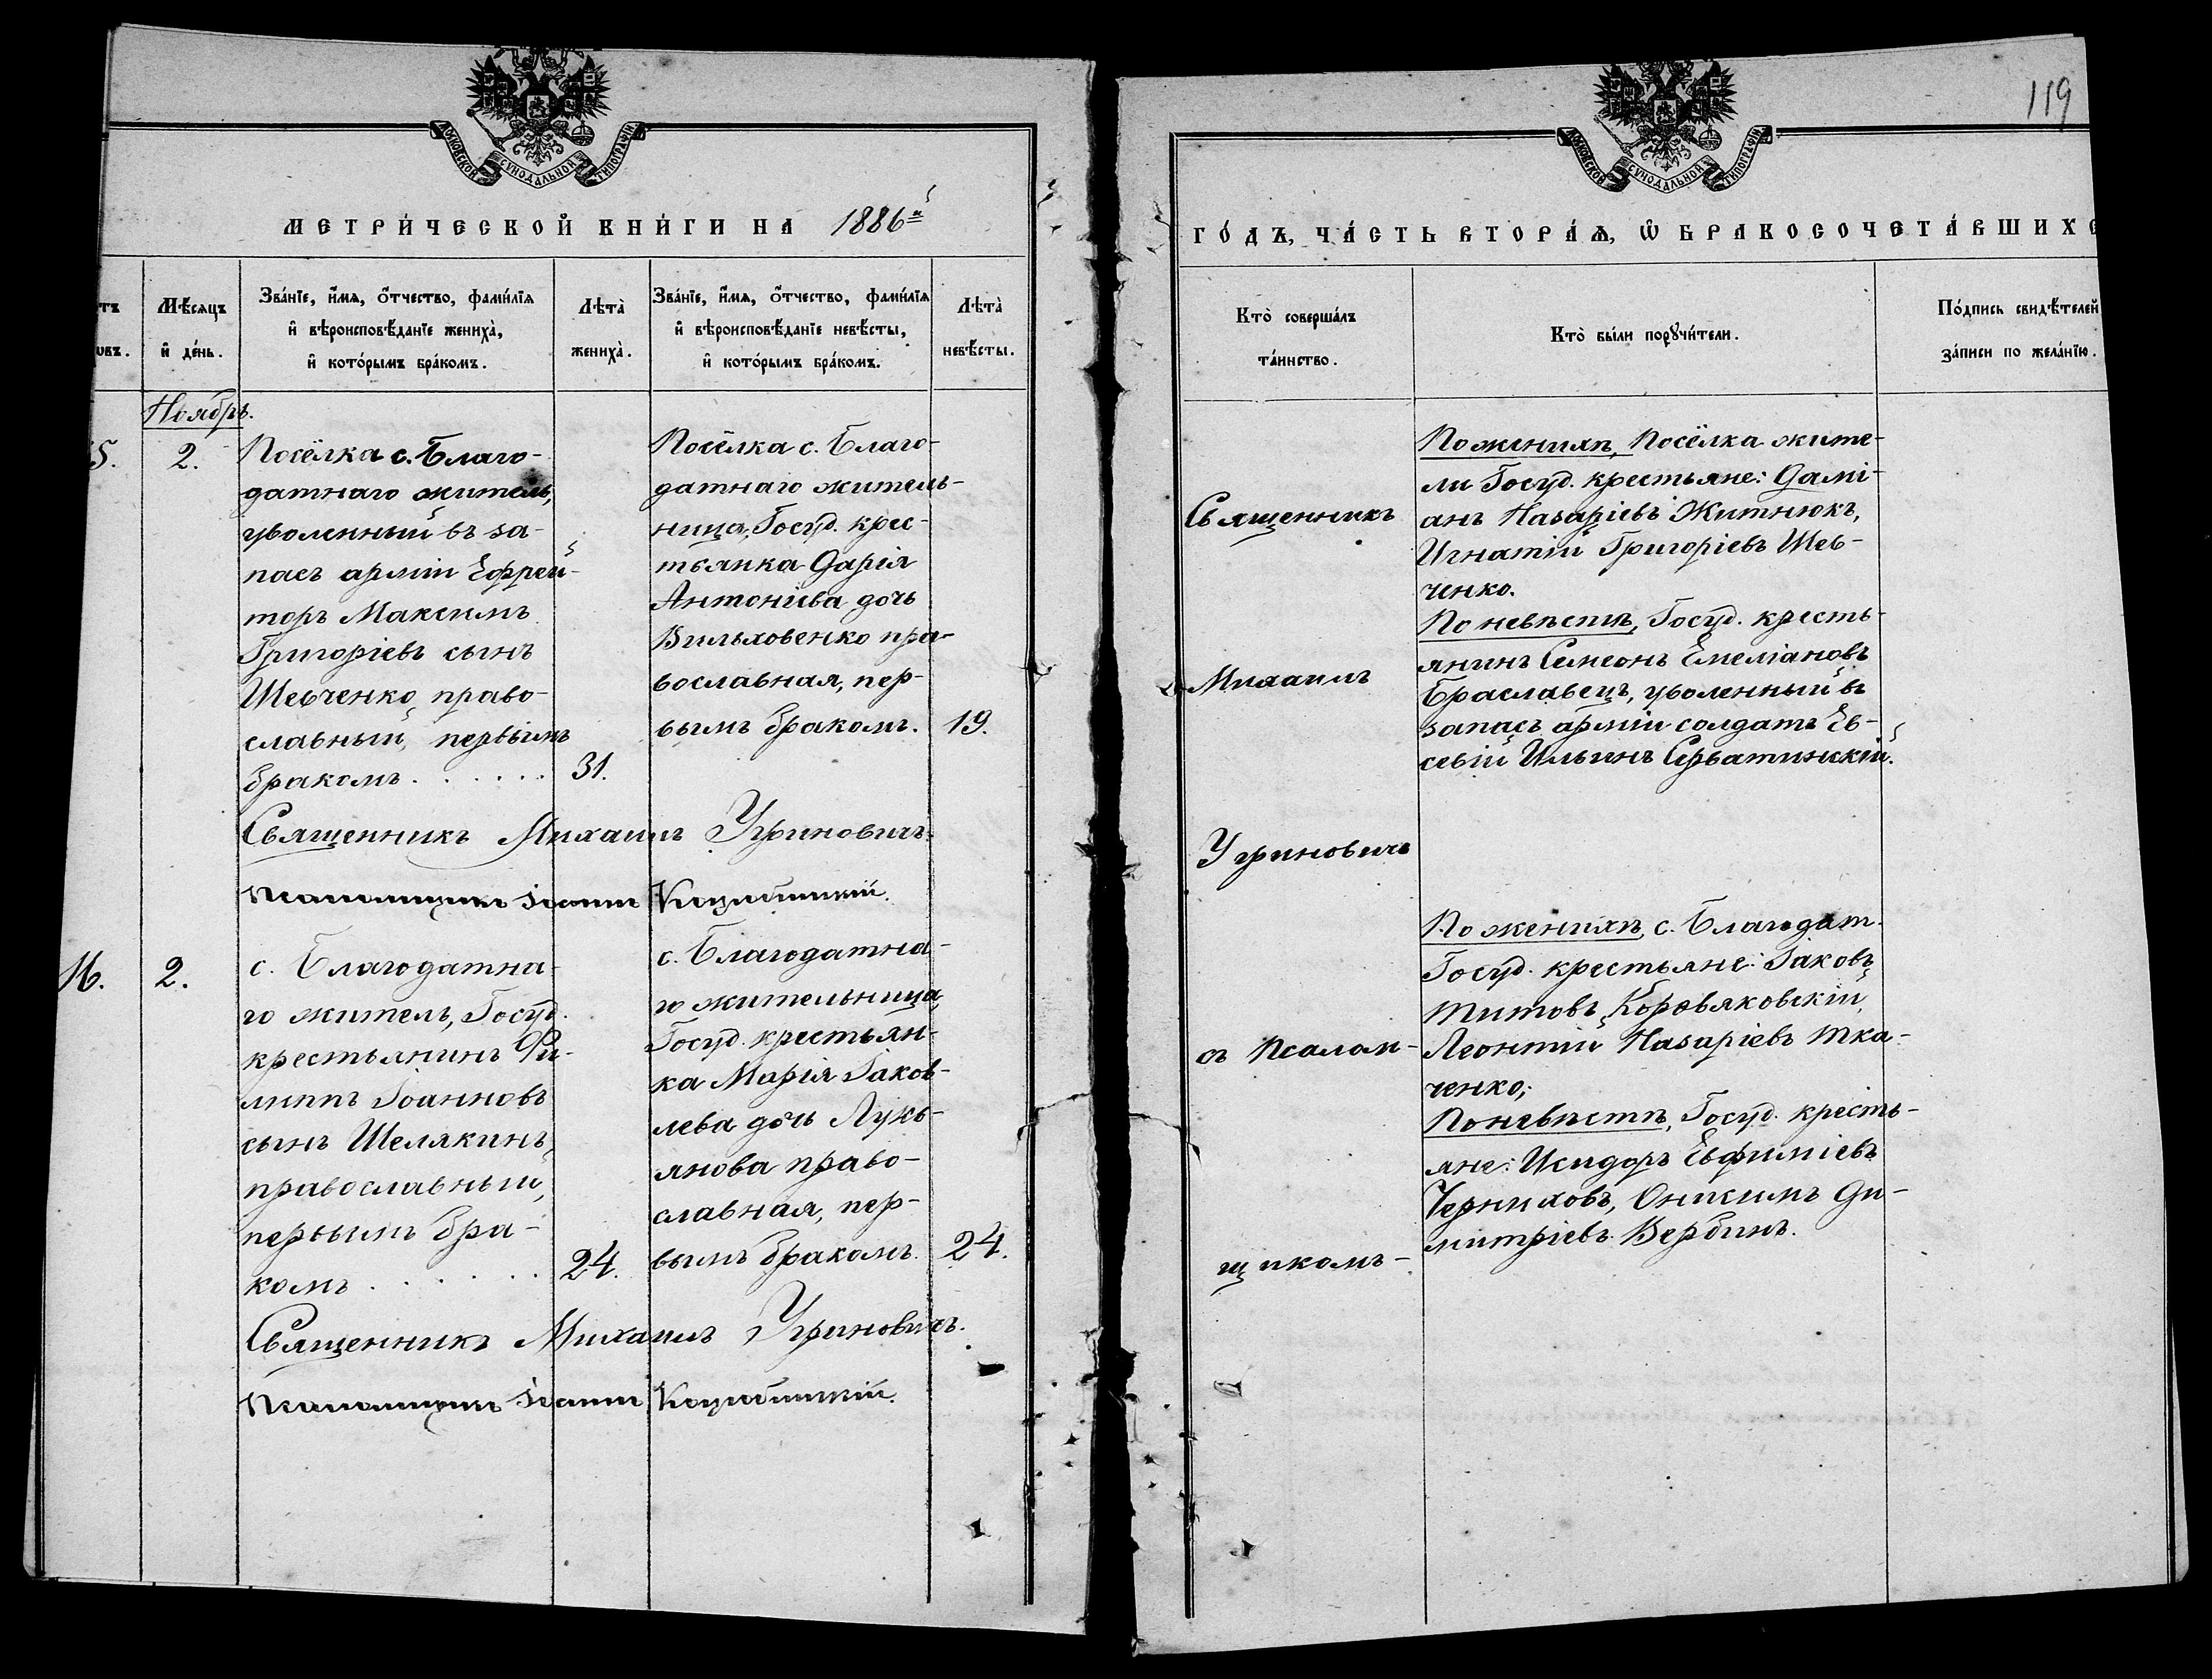 МОСКОВСКОЙ СѴНОДАЛЬНОЙ ТИПОГРАФІИ
МЕТРИ́ЧЕСКОЙ КНИ́ГИ НА 1886й
Мѣ́сяцъ
и҆ де́нь.
Зва́нїе, и҆́мѧ, ѻ҆́тчество, фами́лїѧ
и҆ вѣроисповѣ́данїе жениха̀,
и҆ кото́рымъ бра́комъ.
Лѣта̀
жениха̀.
Зва́нїе, и҆́мѧ, ѻ҆́тчество, фами́лїѧ
и҆ вѣроисповѣ́данїе невѣ́сты,
и҆ кото́рымъ бра́комъ.
Лѣта̀
невѣ́сты.
Ноябрь.
5.
2.
Посёлка с. Благо-
датнаго житель,
уволенный въ за-
пасъ арміи Ефрей-
торъ Максимъ
Григоріевъ сынъ
Шевченко, право-
славный, первымъ
бракомъ . . . . . .
31.
Посёлка с. Благо-
датнаго житель-
ница, Госуд. крес-
тьянка Дарія
Антоніева дочь
Вильховенко пра-
вославная, пер-
вымъ бракомъ.
19.
Священникъ Михаилъ Угриновичъ.
Псаломщикъ Іоаннъ Коцюбинскій.
16.
2.
с. Благодатна-
го житель, Госуд.
крестьянинъ Фи-
липпъ Іоанновъ
сынъ Шелякинъ,
православный,
первымъ бра-
комъ . . . . . .
24.
с. Благодатна-
го жительница,
Госуд. крестьян-
ка Марія Іаков-
лева дочь Лукь-
янова право-
славная, пер-
вымъ бракомъ.
24.
Священникъ Михаилъ Угриновичъ.
Псаломщикъ Іоаннъ Коцюбинскій.
119
МОСКОВСКОЙ СѴНОДАЛЬНОЙ ТИПОГРАФІИ
ГО́ДЪ, ЧА́СТЬ ВТОРА́Ѧ, Ѡ БРАКОСОЧЕТА́ВШИХС
Кто̀ соверша́лъ
та́инство.
Кто̀ бы́ли порꙋчи́тели.
По́дпись свидѣ́телей
за́писи по жела́нїю.
Священникъ
Михаилъ
Угриновичъ
съ Псалом-
щикомъ-
По женихѣ, Посёлка жите-
ли Госуд. крестьяне: Дамі-
анъ Назаріевъ Житнюкъ,
Игнатій Григоріевъ Шев-
ченко.
По невѣстѣ, Госуд. кресть-
янинъ Симеонъ Емеліановъ
Браславецъ, уволенный въ
запасъ арміи солдатъ Ев-
севій Ильинъ Серватинскій.
По женихѣ, с. Благодат.
Госуд. крестьяне: Іаковъ
Титовъ Коровяковскій,
Леонтій Назаріевъ Тка-
ченко;
По невѣстѣ, Госуд. кресть-
яне: Исидоръ Евфиміевъ
Черниховъ, Онисимъ Ди-
митріевъ Вербинъ.